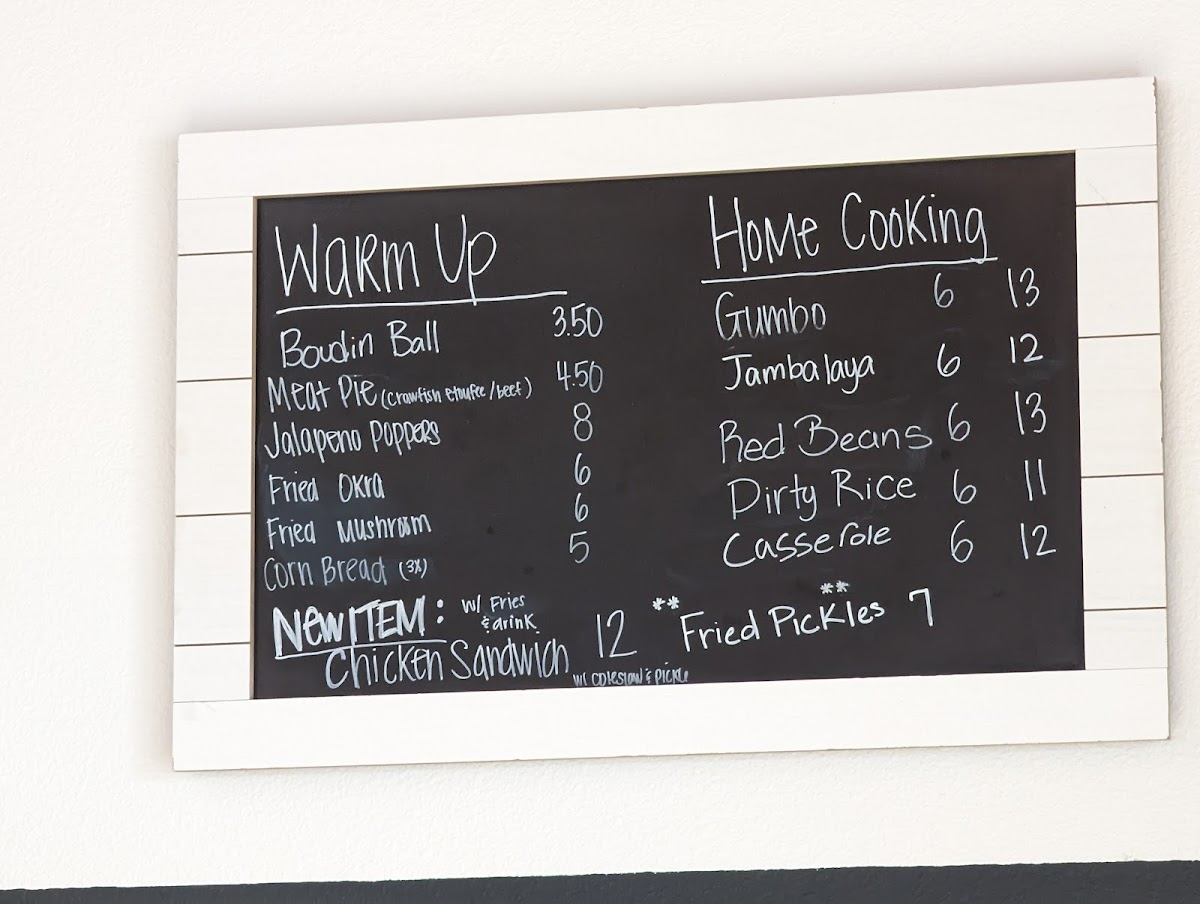 Warm Up
Boudin Ball 3.50
Meat Pie (Crawfish etoufee/beef) 4.50
Jalapeno Poppers 8
Fried Okra 6
Fried Mushroom 6
Corn Bread (3x) 5
New ITEM: w/ Fries & drink
Chicken Sandwich 12
w/ coleslaw & pickle
Home Cooking
Gumbo 6 13
Jambalaya 6 12
Red Beans 6 13
Dirty Rice 6 11
Casserole 6 12
** Fried Pickles ** 7